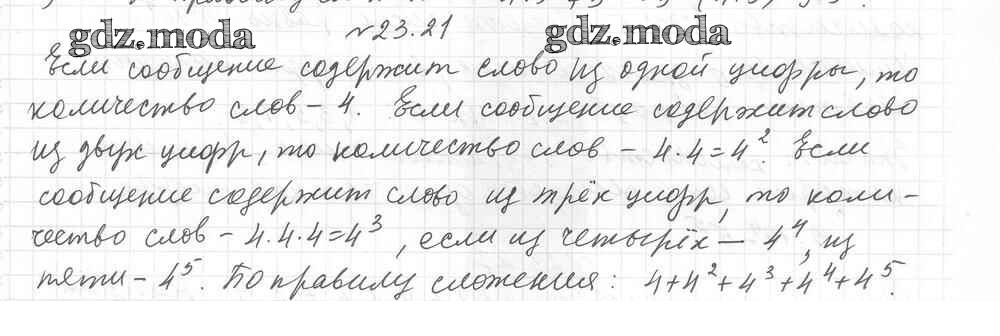 №23.21
gdz.moda gdz.moda
Если сообщение содержит слово из одной цифры, то
количество слов – 4. Если сообщение содержит слово
из двух цифр, то количество слов – 4·4=4². Если
сообщение содержит слово из трёх цифр, то коли-
чество слов – 4·4·4=4³, если из четырёх – 4⁴, из
пяти – 4⁵. По правилу сложения: 4+4²+4³+4⁴+4⁵.